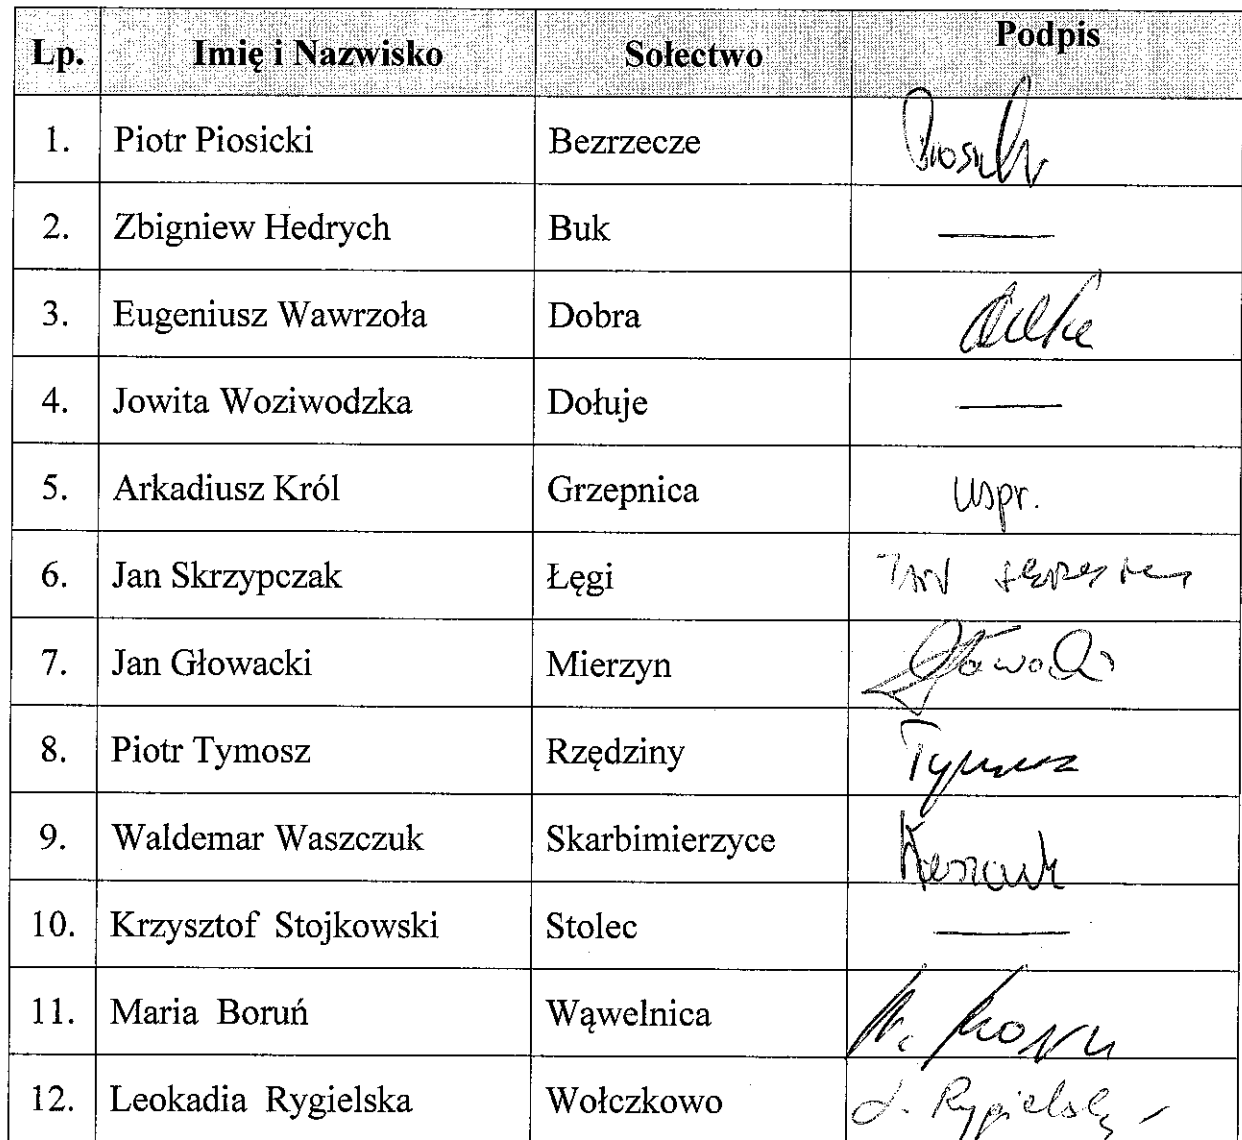 Lp. Imię i Nazwisko Sołectwo Podpis
1. Piotr Piosicki Bezrzecze
2. Zbigniew Hedrych Buk —
3. Eugeniusz Wawrzoła Dobra
4. Jowita Woziwodzka Dołuje —
5. Arkadiusz Król Grzepnica uspr.
6. Jan Skrzypczak Łęgi
7. Jan Głowacki Mierzyn
8. Piotr Tymosz Rzędziny
9. Waldemar Waszczuk Skarbimierzyce
10. Krzysztof Stojkowski Stolec —
11. Maria Boruń Wąwelnica
12. Leokadia Rygielska Wołczkowo